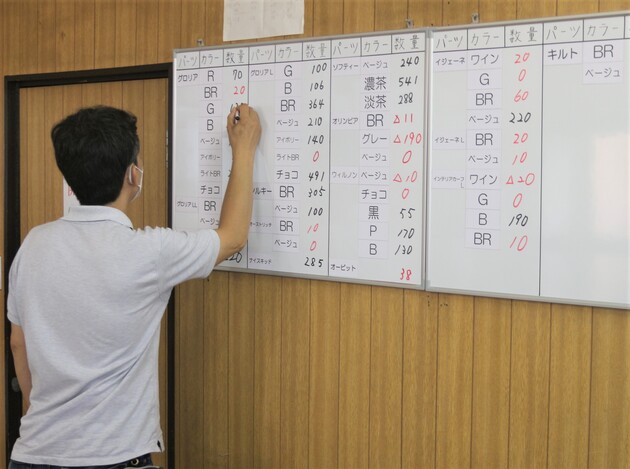 パーツ カラー 数量
グロリア R 70
BR 20
G
B
ベージュ
アイボリー
ライトBR
チョコ
グロリアLL BR
ベージュ
B
220
パーツ カラー 数量
グロリアL G 100
B 106
BR 364
ベージュ 210
アイボリー 140
ライトBR 0
チョコ 491
BR 305
ベージュ 100
BR 10
ベージュ 0
285
パーツ カラー 数量
ソフティー ベージュ 240
濃茶 541
淡茶 288
オリンピア BR △11
グレー △190
ベージュ 0
ウィルノン ベージュ △10
チョコ 0
黒 55
P 170
B 130
オービット 38
パーツ カラー 数量
イジェーネ ワイン 20
G 0
BR 60
ベージュ 220
イジェーネL BR 20
ベージュ 10
ワイン △20
G 0
B 190
BR 10
パーツ カラー
キルト BR
ベージュ